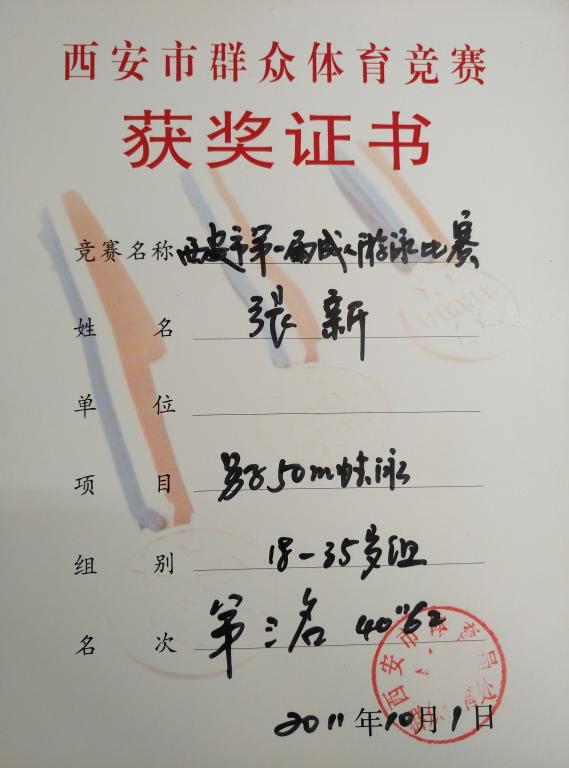 西安市群众体育竞赛
获奖证书
竞赛名称 西安市第一届成人游泳比赛
姓名 張新
单位
项目 男子50m蛙泳
组别 18-35岁组
名次 第三名 40"62
西安市体育局
2011年10月1日